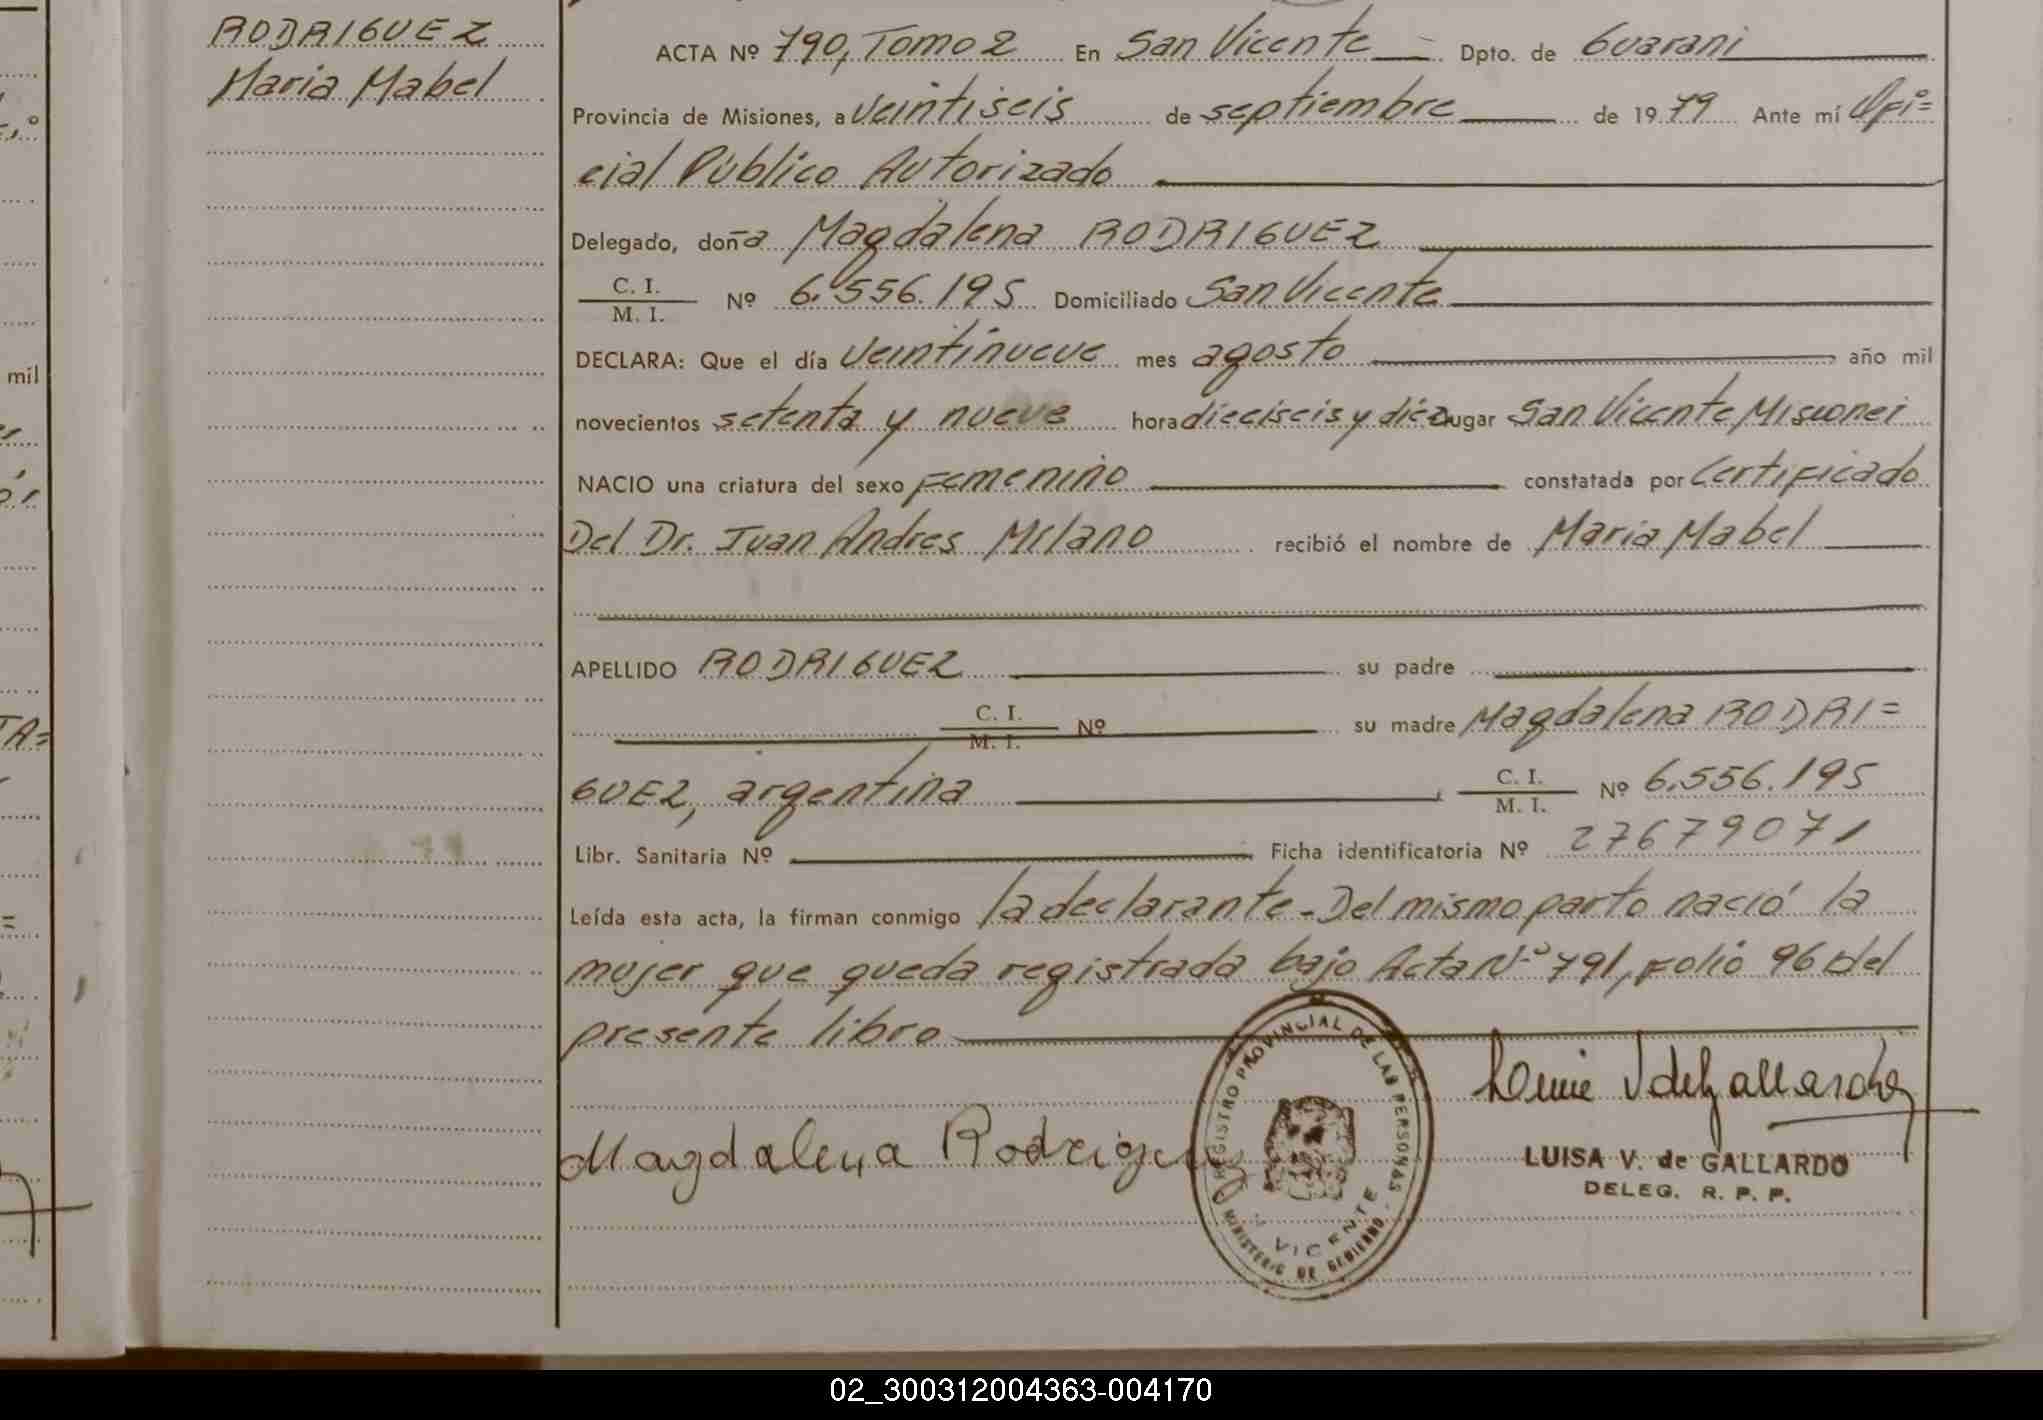 RODRIGUEZ
Maria Mabel
ACTA Nº 790, Tomo 2 En San Vicente Dpto. de Guarani
Provincia de Misiones, a veintiseis de septiembre de 1979 Ante mí Ofi=
cial Público Autorizado
Delegado, doña Magdalena RODRIGUEZ
C. I.
M. I. Nº 6.556.195 Domiciliado San Vicente
DECLARA: Que el día veintinueve mes agosto año mil
novecientos setenta y nueve hora dieciseis y diez lugar San Vicente Misiones
NACIO una criatura del sexo Femenino constatada por Certificado
Del Dr. Juan Andres Milano recibió el nombre de Maria Mabel
APELLIDO RODRIGUEZ su padre
C. I.
M. I. Nº su madre Magdalena RODRI=
GUEZ, argentina C. I.
M. I. Nº 6.556.195
Libr. Sanitaria Nº Ficha identificatoria Nº 27679071
Leída esta acta, la firman conmigo la declarante. Del mismo parto nació la
mujer que queda registrada bajo Acta Nº 791, Folio 96 del
presente libro
Magdalena Rodriguez
REGISTRO PROVINCIAL DE LAS PERSONAS
VICENTE
MINISTERIO DE GOBIERNO
LUISA V. de GALLARDO
DELEG. R. P. P.
mil
TA=
02_300312004363-004170